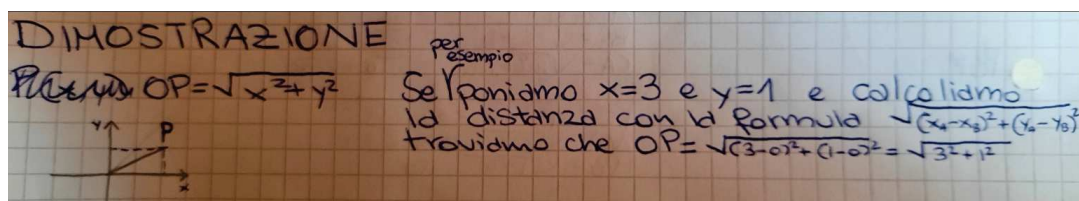 DIMOSTRAZIONE
OP=√x²+y²
y
P
x
per esempio
Se poniamo x=3 e y=1 e calcoliamo
la distanza con la formula √(xA-xB)²+(yA-yB)²
troviamo che OP=√(3-0)²+(1-0)²=√3²+1²